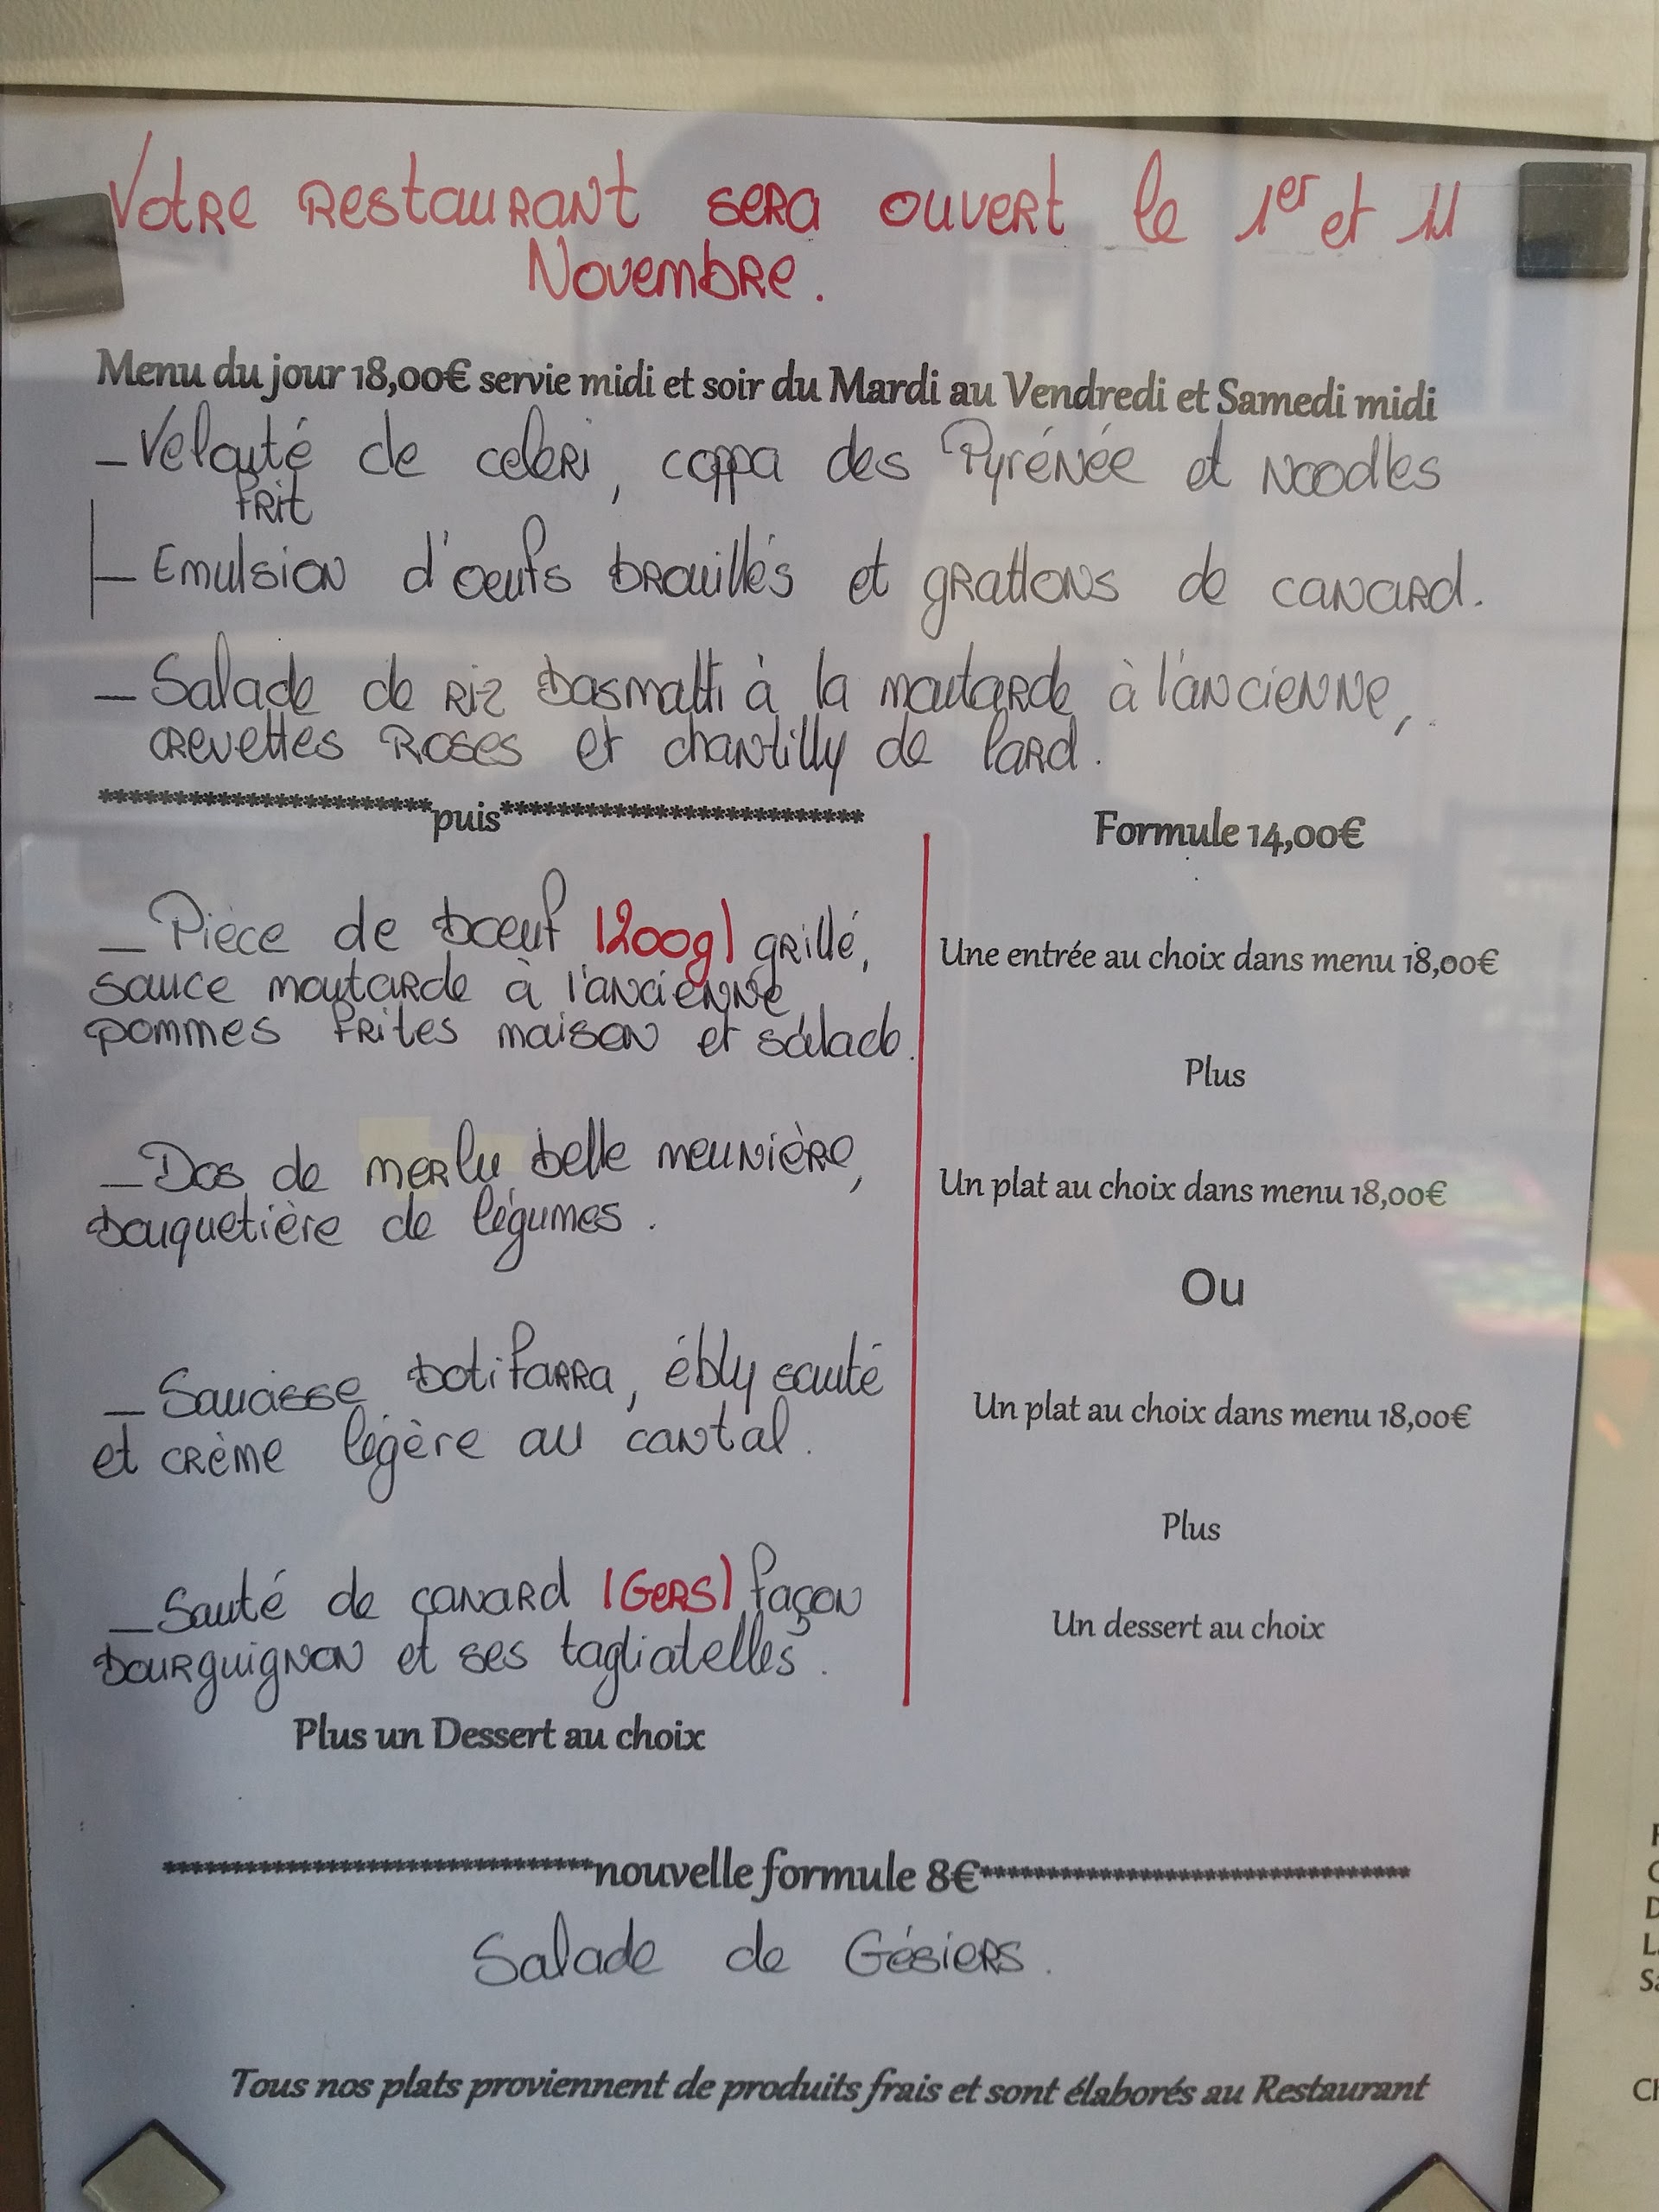 Votre restaurant sera ouvert le 1er et 11
Novembre.
Menu du jour 18,00€ servie midi et soir du Mardi au Vendredi et Samedi midi
_ Velouté de celeri, coppa des Pyrénée et Noodles
frit
_ Emulsion d'oeufs brouillés et grattons de canard.
_ Salade de riz basmatti à la moutarde à l'ancienne,
crevettes roses et chantilly de lard.
**********************puis************************
_ Pièce de boeuf (200g) grillé,
sauce moutarde à l'ancienne,
pommes frites maison et salade.
_ Dos de merlu belle meunière,
bouquetière de légumes.
_ Saucisse botifarra, ébly sauté
et crème légère au cantal.
_ Sauté de canard (Gers) façon
bourguignon et ses tagliatelles.
Plus un Dessert au choix
Formule 14,00€
Une entrée au choix dans menu 18,00€
Plus
Un plat au choix dans menu 18,00€
Ou
Un plat au choix dans menu 18,00€
Plus
Un dessert au choix
******************************nouvelle formule 8€******************************
Salade de Gésiers.
Tous nos plats proviennent de produits frais et sont élaborés au Restaurant